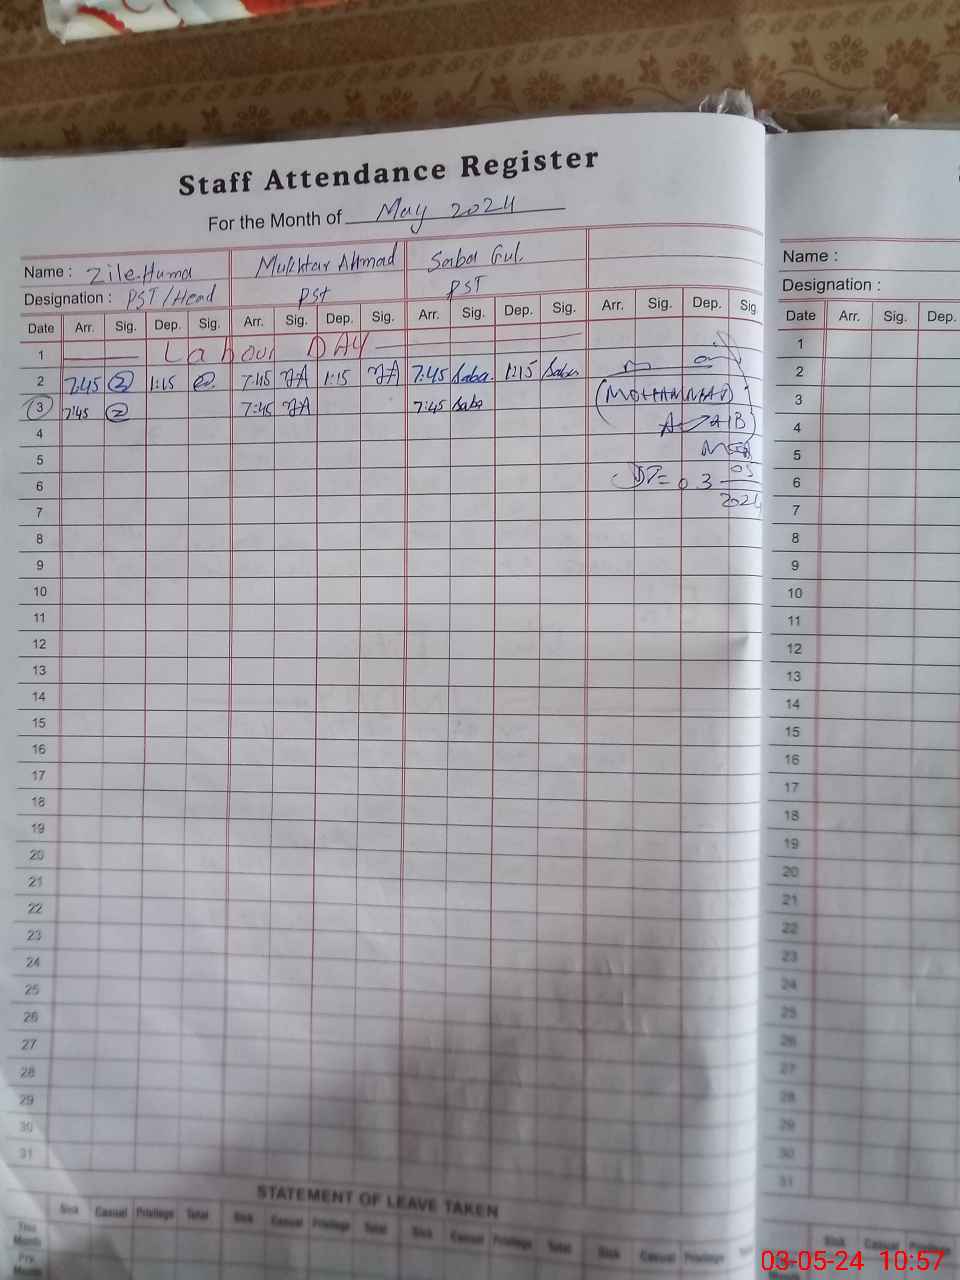 Staff Attendance Register
For the Month of May 2024
Name : Zile.Huma Mukhtar Ahmad Saba Gul.
Designation : PST/Head PST PST
Date Arr. Sig. Dep. Sig. Arr. Sig. Dep. Sig. Arr. Sig. Dep. Sig. Arr. Sig. Dep. Sig
1 Labour DAY
2 7:45 1:15 7:45 1:15 7:45 Saba. 1:15 Saba
3 7:45 7:45 7:45 Saba
(MOHAMMAD
4
5
6
DT= 03 05 2024
7
8
9
10
11
12
13
14
15
16
17
18
19
20
21
22
23
24
25
26
27
28
29
30
31
STATEMENT OF LEAVE TAKEN
Sick Casual Privilege Total Sick Casual Privilege Total Sick Casual Privilege Total Sick Casual Privilege
This Month
Prv. Month
Name :
Designation :
Date Arr. Sig. Dep.
1
2
3
4
5
6
7
8
9
10
11
12
13
14
15
16
17
18
19
20
21
22
23
24
25
26
27
28
29
30
31
Sick Casual Privilege
03-05-24 10:57